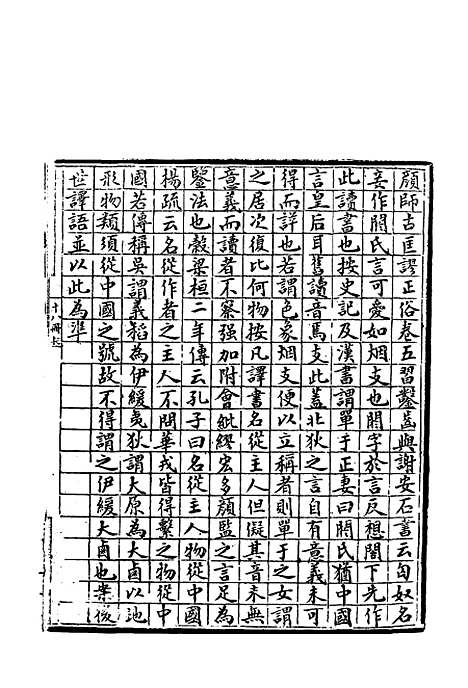 顏師古匡謬正俗卷五習鑿齒與謝安石書云匈奴名
妾作閼氏言可愛如烟支也閼字於言反想閣下先作
此讀書也按史記及漢書謂單于正妻曰閼氏猶中國
言皇后耳舊讀音焉支此蓋北狄之言自有意義未可
得而詳也若謂色象烟支便以立稱者則單于之女謂
之居次復比何物按凡譯書名從主人但儗其音未無
意義而讀者不察强加附會紕繆宏多顏監之言足為
鑒法也穀梁桓二年傳云孔子曰名從主人物從中國
楊疏云名從作者之主人不問華戎皆得繫之物從中
國若傳稱吳謂善稻為伊緩夷狄謂大原為大鹵以地
形物類須從中國之號故不得謂之伊緩大鹵也案後
世譯語並以此為準
十八冊